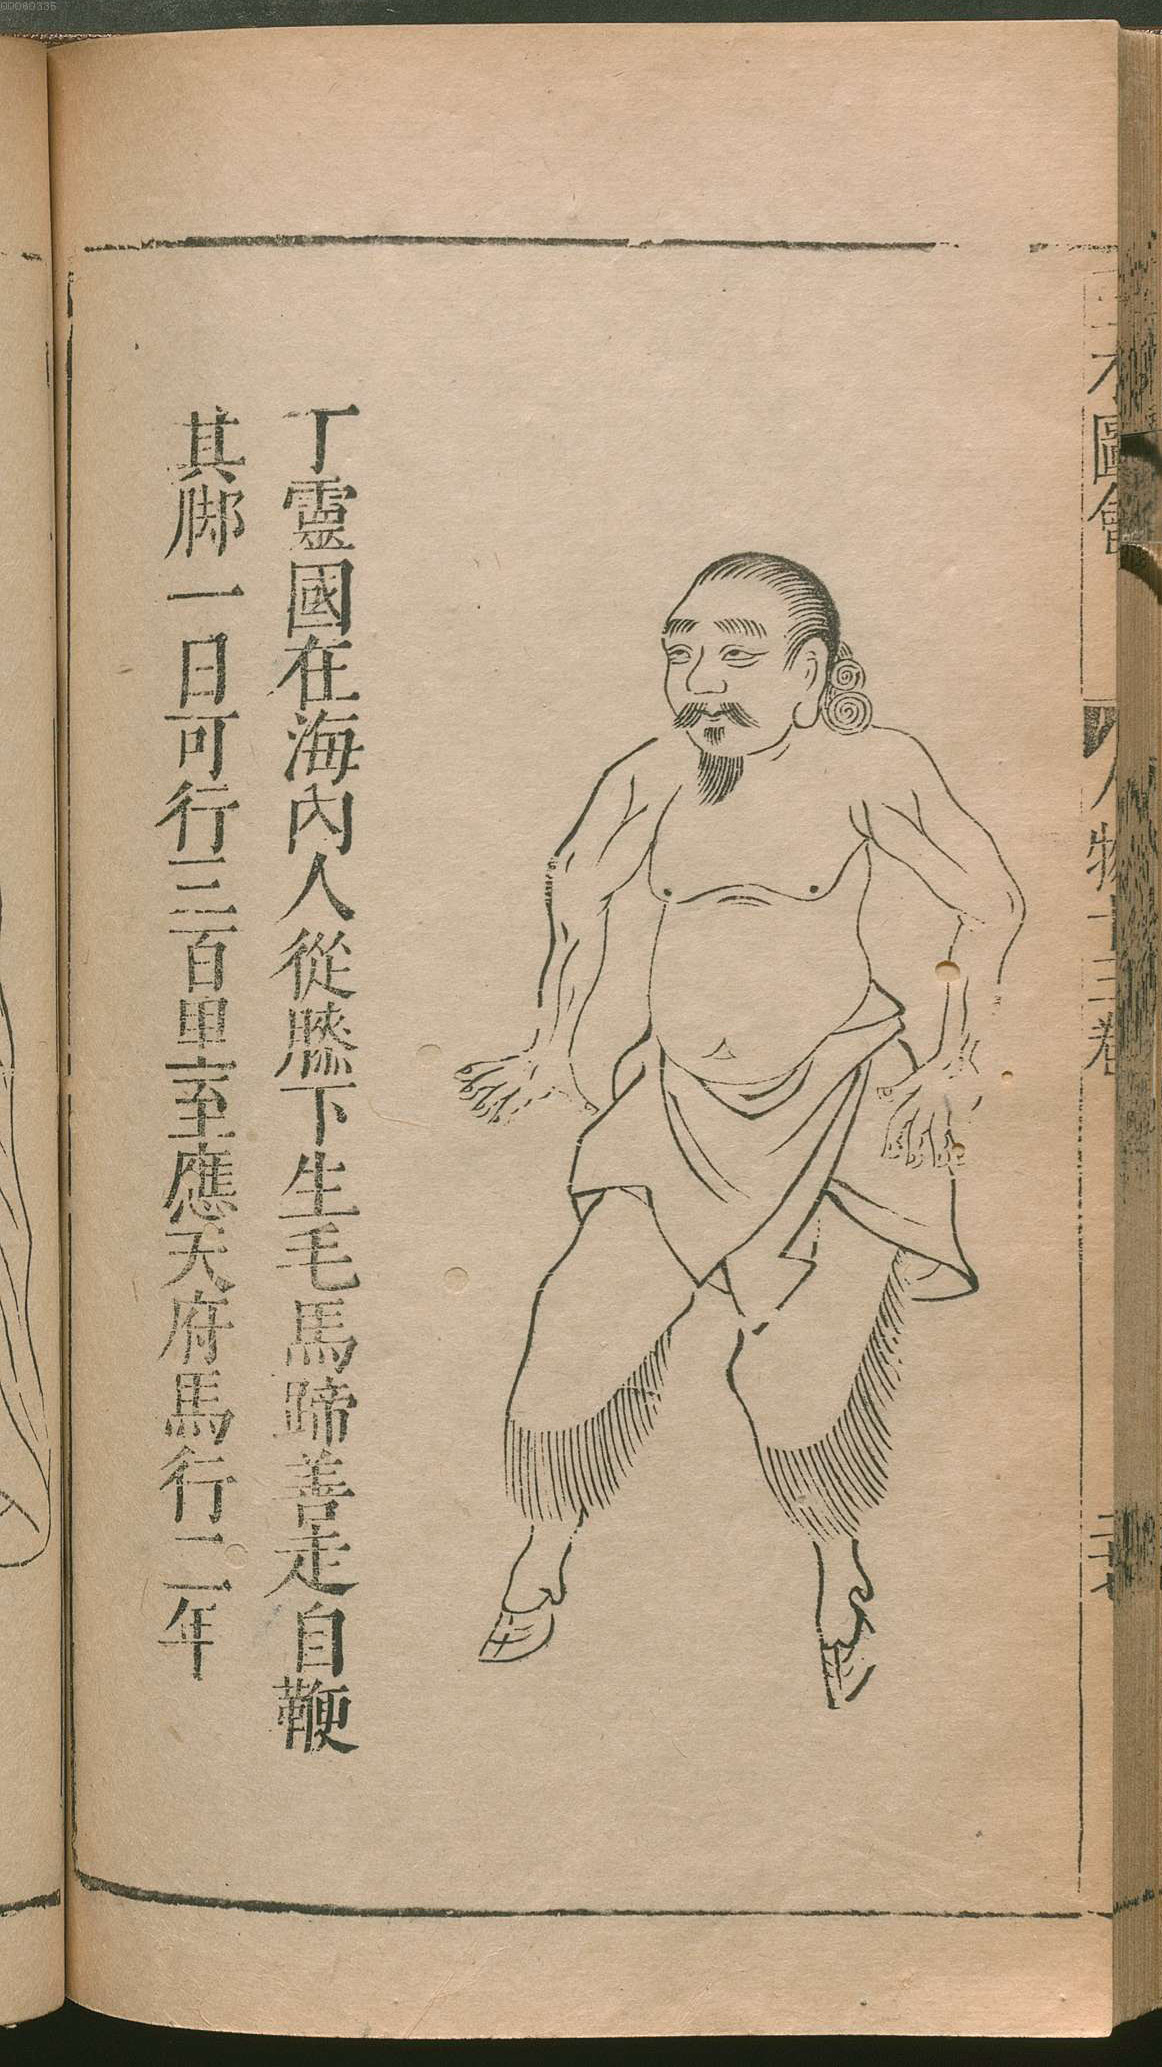 丁靈國在海内人從膝下生毛馬蹄善走自鞭
其脚一日可行三百里至應天府馬行二年
圖會
人物十三卷
00060335